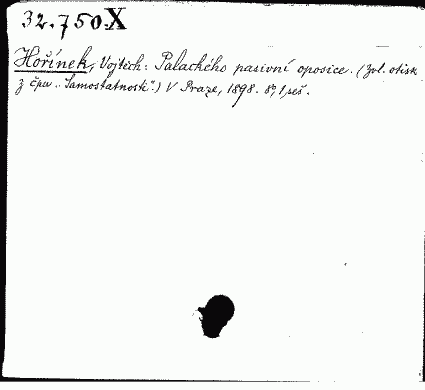 32.750.X
Hořínek, Vojtěch: Palackého pasivní oposice. (Zvl. otisk
z čpu „Samostatnosti“.) V Praze, 1898. 8°, 1 seš.